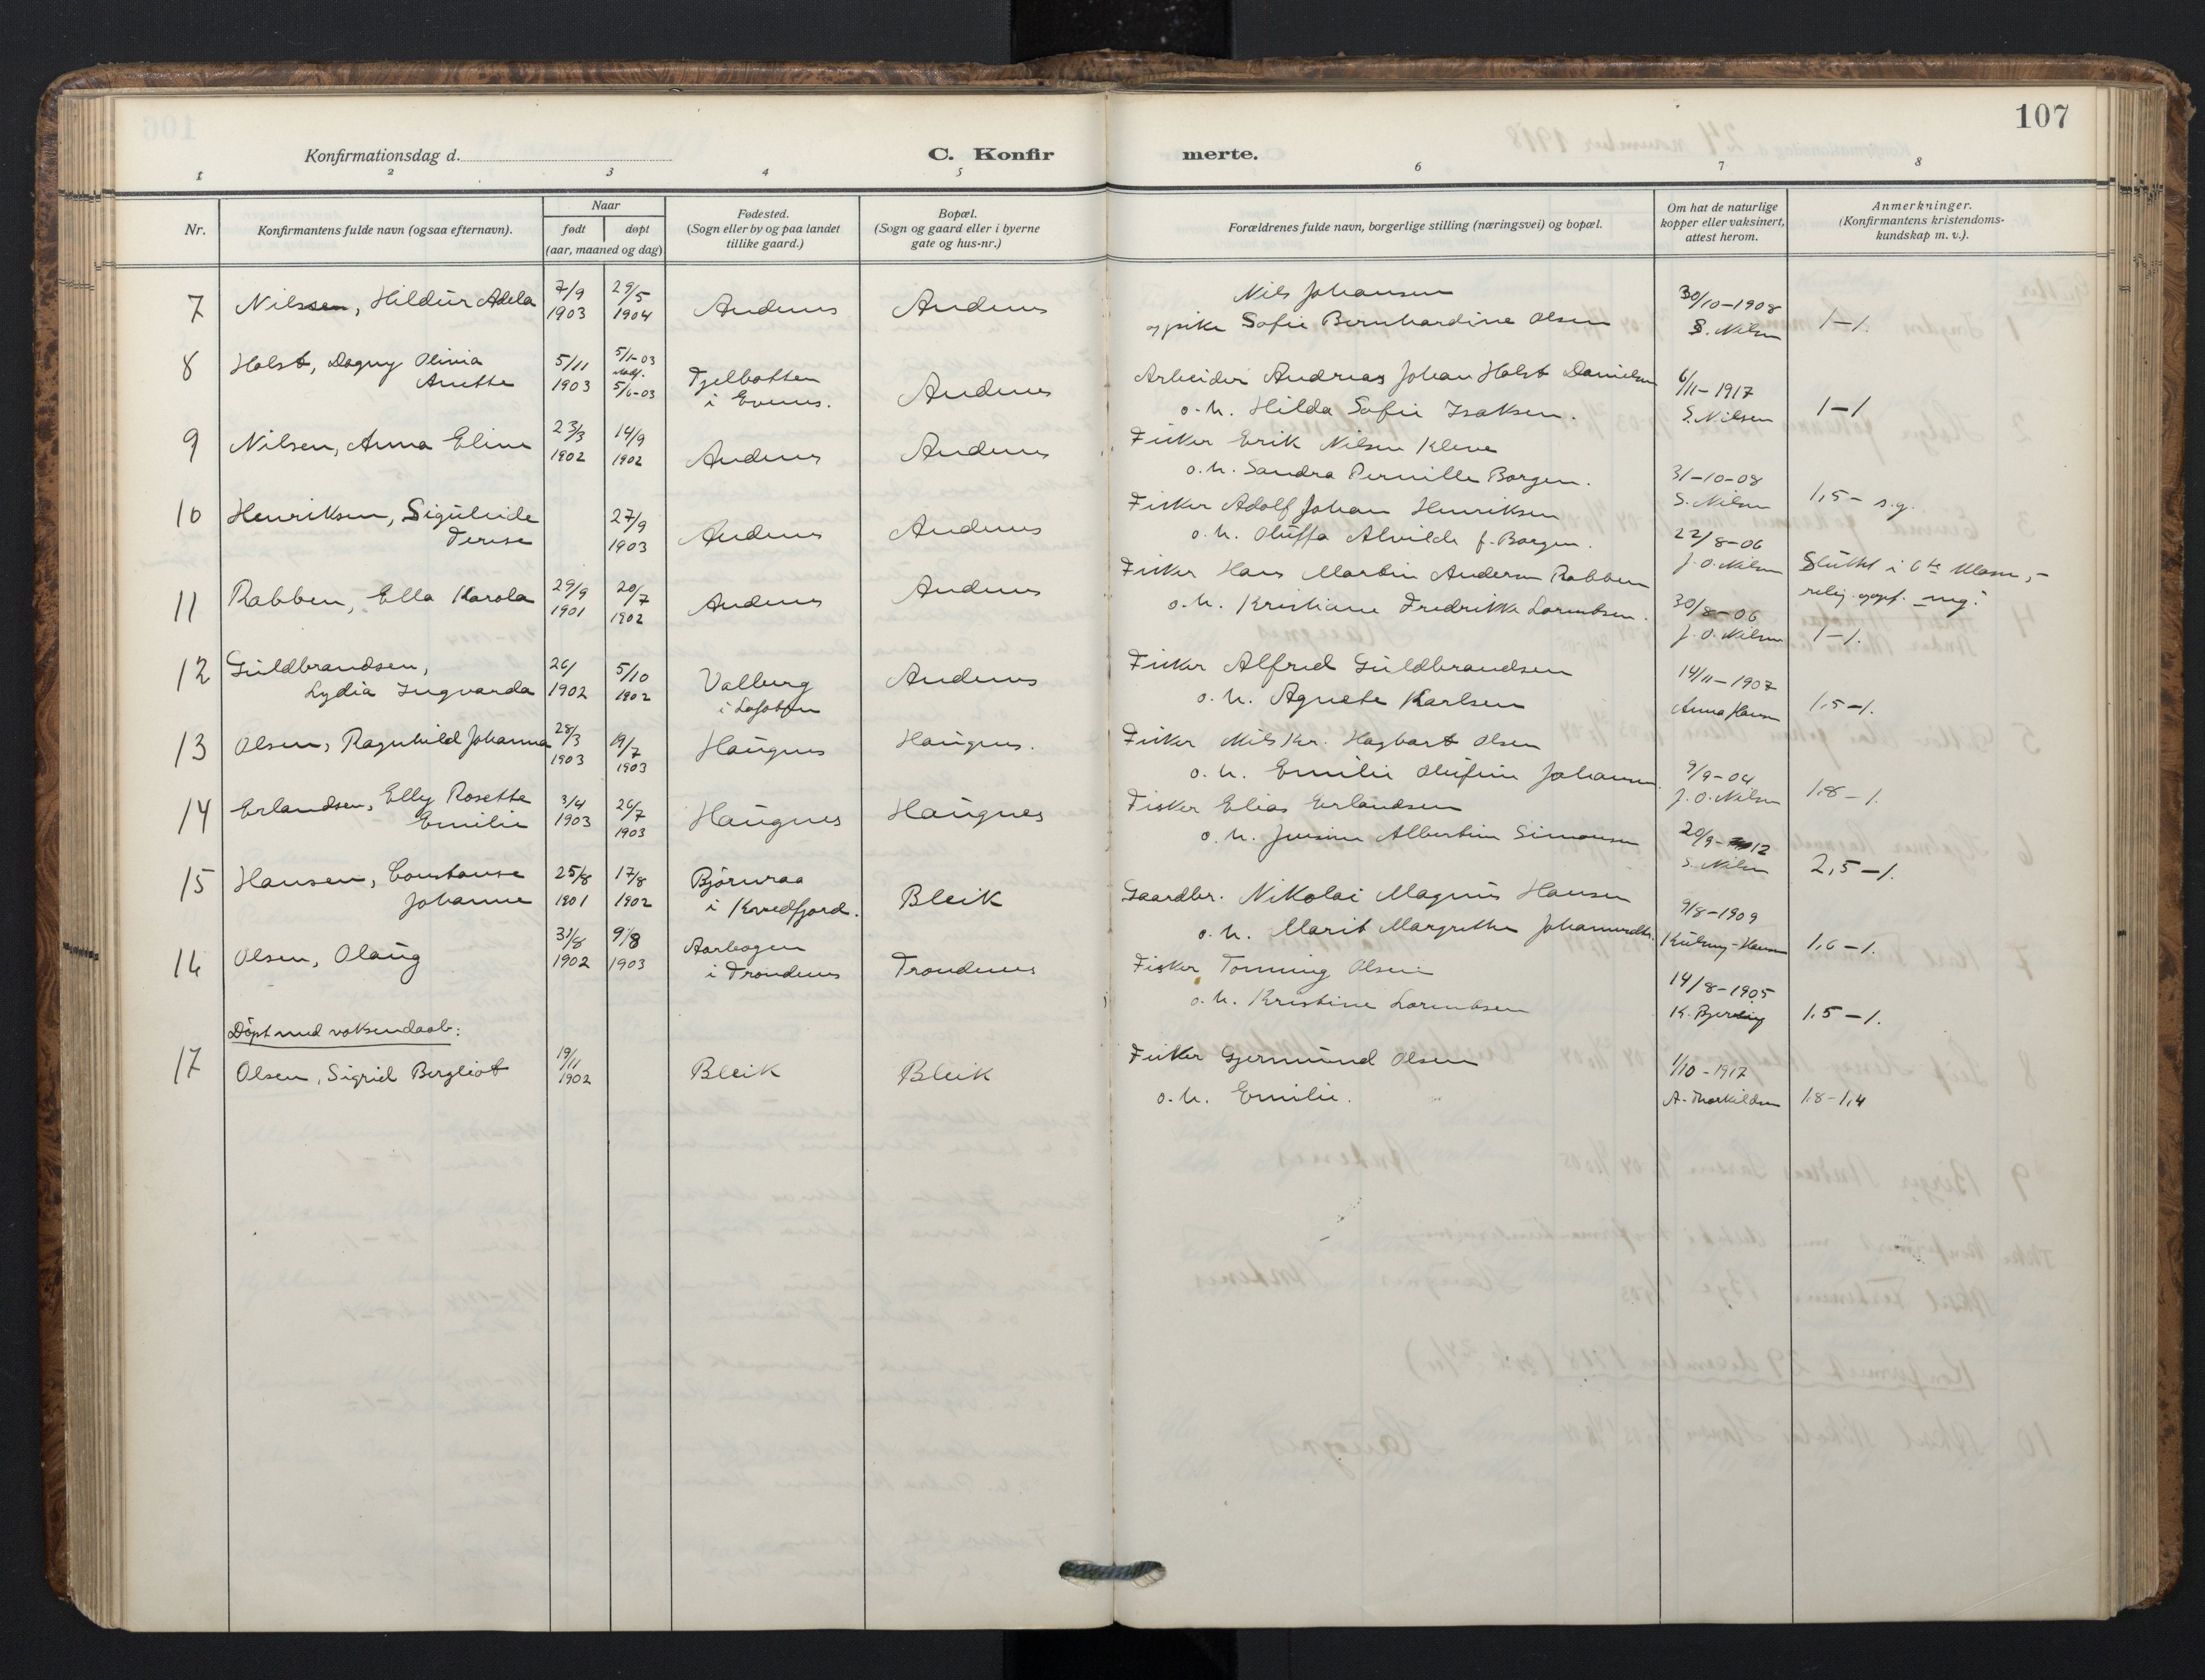 107
Konfirmationsdag d.
C. Konfirmerte.
1 2 3 4 5 6 7 8
Nr.
Konfirmantens fulde navn (ogsaa efternavn).
Naar
født døpt
(aar, maaned og dag)
Fødested.
(Sogn eller by og paa landet
tillike gaard.)
Bopæl.
(Sogn og gaard eller i byerne
gate og hus-nr.)
Forældrenes fulde navn, borgerlige stilling (næringsvei) og bopæl.
Om hat de naturlige
kopper eller vaksinert,
attest herom.
Anmerkninger.
(Konfirmantens kristendoms-
kundskap m. v.).
7 Nilssen, Hildur Adela 7/9 1903 29/5 1904 Andenes Andenes
Nils Johansen
og pike Sofie Bernhardine Olsen
30/10-1908
S. Nilsen
1-1.
8 Holst, Dagny Olivia
Anette
5/11 1903 5/1-03
5/6-03
Fjelbotten
i Evenes.
Andenes
Arbeider Andreas Johan Holst Danielsen
o. h. Hilda Sofie Isaksen.
6/11-1917
S. Nilsen
1-1
9 Nilsen, Anna Eline 23/3 1902 14/9 1902 Andenes Andenes
Fisker Erik Nilsen Kleve
o. h. Sandra Pernille Borgen.
31-10-08
S. Nilsen
1,5- s.g.
10 Henriksen, Sigulvide
Terese
27/9 1903 Andenes Andenes
Fisker Adolf Johan Henriksen
o. h. Oluffa Alvilde f. Borgen.
22/8-06
J. O. Nilsen
Sluttet i 6te klasse,-
relig. opgf. mg.
11 Robben, Ella Karola 29/9 1901 20/7 1902 Andenes Andenes
Fisker Hans Martin Andersen Robben
o. h. Kristiane Fredrikke Lorentsen.
30/8-06
J. O. Nilsen
1-1.
12 Guldbrandsen,
Lydia Ingvarda
26/ 1902 5/10 1902
Valberg
i Lofoten
Andenes
Fisker Alfred Guldbrandsen
o. h. Agnete Karlsen
14/11-1907
Anna Hansen
1,5-1.
13 Olsen, Ragnhild Johanna 28/3 1903 19/7 1903 Haugnes Haugnes.
Fisker Nils Kr. Hagbart Olsen
o. h. Emilie Olufine Johansen
9/9-04
J. O. Nilsen
1,8-1.
14 Erlandsen, Elly Rosette
Emilie
3/4 1903 26/7 1903 Haugnes Haugnes
Fisker Elias Erlandsen
o. h. Jensine Albertine Simonsen
20/9-12
S. Nilsen
2,5-1.
15 Hansen, Constanse
Johanne
25/8 1901 17/8 1902
Bjørnraa
i Kvedfjord.
Bleik
Gaardbr. Nikolai Magnus Hansen
o. h. Marit Margrethe Johannesdtr.
9/8-1909
1,6-1.
16 Olsen, Olaug 31/8 1902 9/8 1903
Aarbogen
i Trondenes
Trondenes
Fisker Tonning Olsen
o. h. Kristine Lorentsen
14/8-1905
1,5-1.
Døpt med voksendaab:
17 Olsen, Sigrid Bergliot 19/11 1902 Bleik Bleik
Fisker Gjermund Olsen
o. h. Emilie.
1/10-1917
A. Thorkildsen
1,8-1,4